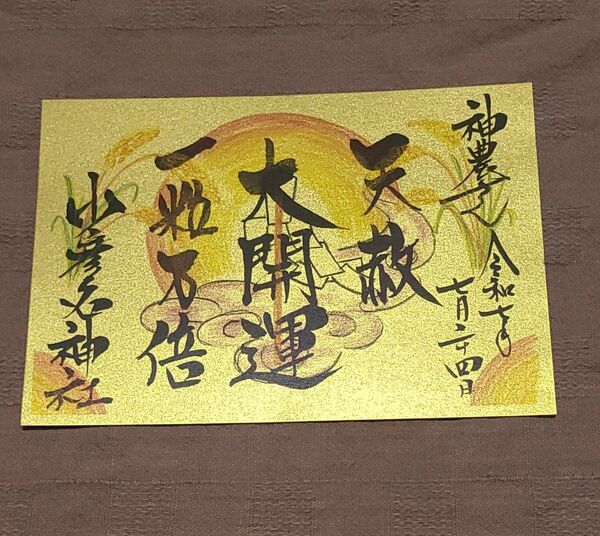 神農さん 令和七年
七月二十四日
天赦
大開運
一粒万倍
少彦名神社